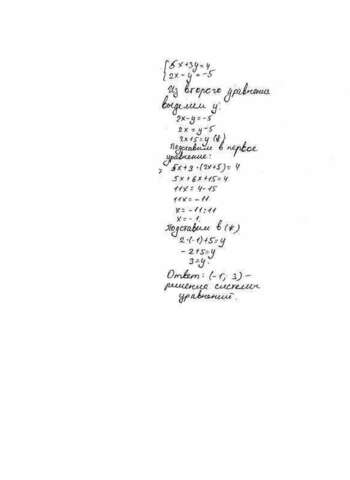 5x+3y=4
2x-y=-5
Из второго уравнения
выделем y:
2x-y=-5
2x=y-5
2x+5=y (*)
Подставим в первое
уравнение:
5x+3·(2x+5)=4
5x+6x+15=4
11x=4-15
11x=-11
x=-11:11
x=-1.
Подставим в (*)
2·(-1)+5=y
-2+5=y
3=y.
Ответ: (-1; 3) -
решения системы
уравнений.